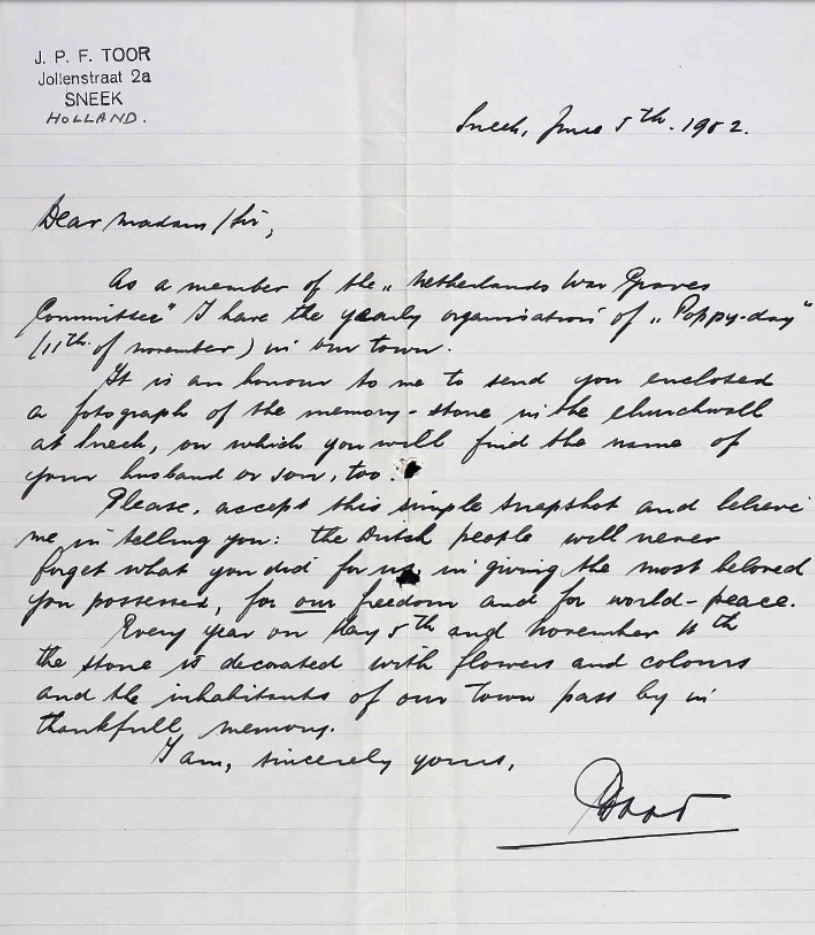 J. P. F. TOOR
Jollenstraat 2a
SNEEK
HOLLAND.
Sneek, June 5th. 1952.
Dear Madam / Sir,
As a member of the „Netherlands War Graves
Committee" I have the yearly organisation of „Poppy-day"
(11th. of november) in our town.
It is an honour to me to send you enclosed
a fotograph of the memory-stone in the churchwall
at Sneek, on which you will find the name of
your husband or son, too.
Please, accept this simple snapshot and believe
me in telling you: the Dutch people will never
forget what you did for us, in giving the most beloved
you possessed, for our freedom and for world-peace.
Every year on May 5th and november 11th
the stone is decorated with flowers and colours
and the inhabitants of our town pass by in
thankfull memory.
I am, sincerely yours,
Toor